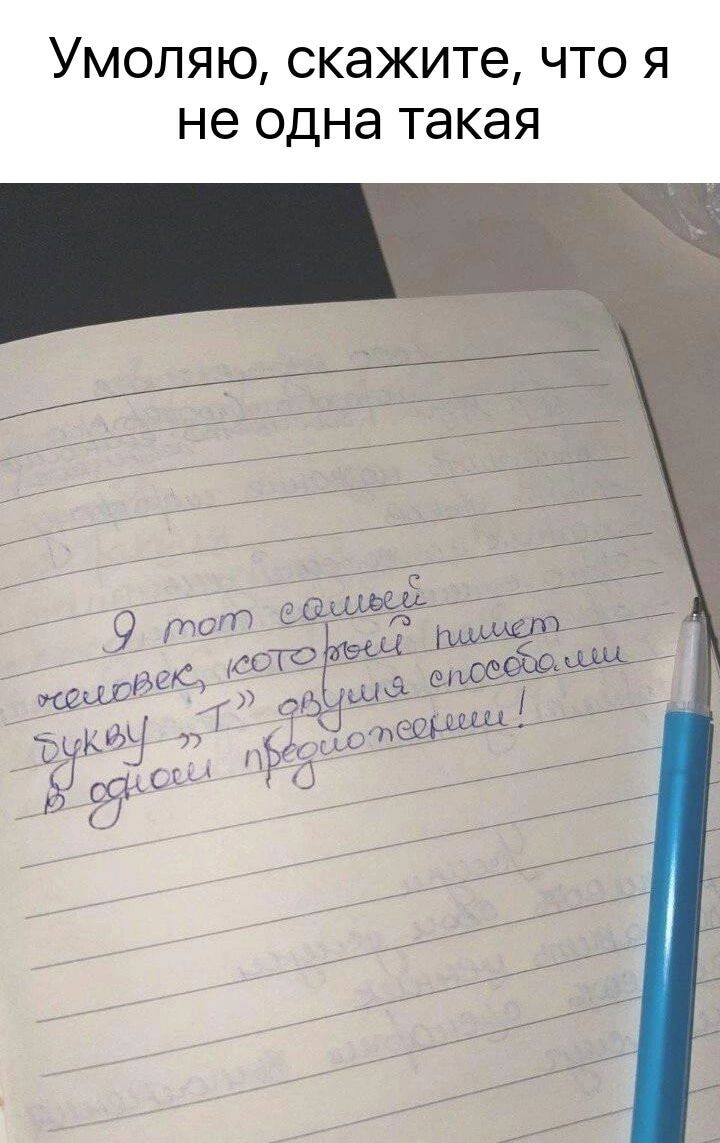 Умоляю, скажите, что я
не одна такая
Я тот самый
человек, который пишет
букву „Т” двумя способами
в одном предложении!